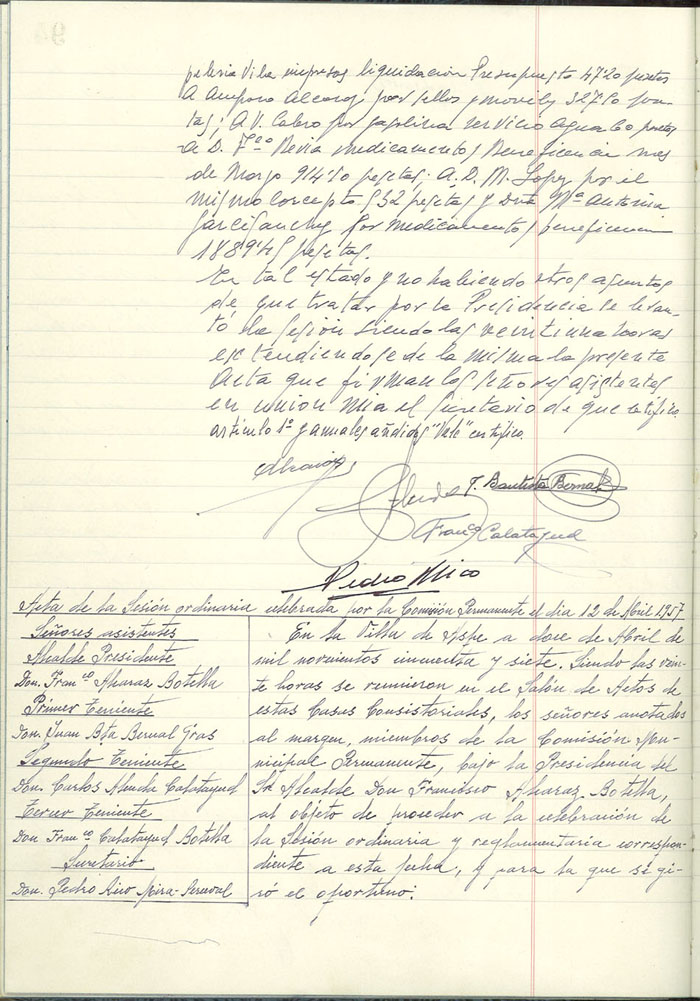 peleria Vila impresos liquidacion Presupuesto 4720 pesetas
A Amparo Alcaraz por sellos y moviles 327'50 pese
tas; A V. Calero por gasolina servicio agua 60 pesetas
A D. Fco Revia medicamentos Beneficencia mes
de Marzo 914'10 pesetas; A D. M. Lopez por el
mismo concepto 532 pesetas y Dña Mª Antonia
Garcisanchez por medicamentos beneficencia
1889'45 pesetas.
En tal estado y no habiendo otros asuntos
de que tratar por la Presidencia se levan-
tó la sesión siendo las veintiuna horas
extendiendose de la misma la presente
Acta que firman los señores asistentes
en union mia el Secretario de que certifico.
articulo 1º y anuales añadidos "Vale" certifico.
Alcaraz
Almodo T. Bautista Bernal
Franco Calatayud
Pedro Rico
Acta de la Sesión ordinaria celebrada por la Comisión Permanente el dia 12 de Abril 1957
Señores asistentes
Alcalde Presidente
Don. Franco Alcaraz Botella
Primer Teniente
Don. Juan Bta Bernal Gras
Segundo Teniente
Don. Carlos Calatayud
Tercer Teniente
Don Franco Calatayud Botella
Secretario
Don. Pedro Rico Mira-Perceval
En la Villa de Aspe a doce de Abril de
mil novecientos cincuenta y siete. Siendo las vein-
te horas se reunieron en el Salón de Actos de
estas Casas Consistoriales, los señores anotados
al margen, miembros de la Comisión Mu-
nicipal Permanente, bajo la Presidencia del
Sr Alcalde Don Francisco Alcaraz Botella,
al objeto de proceder a la celebración de
la Sesión ordinaria y reglamentaria correspon-
diente a esta fecha, y para la que se gi-
ró el oportuno: